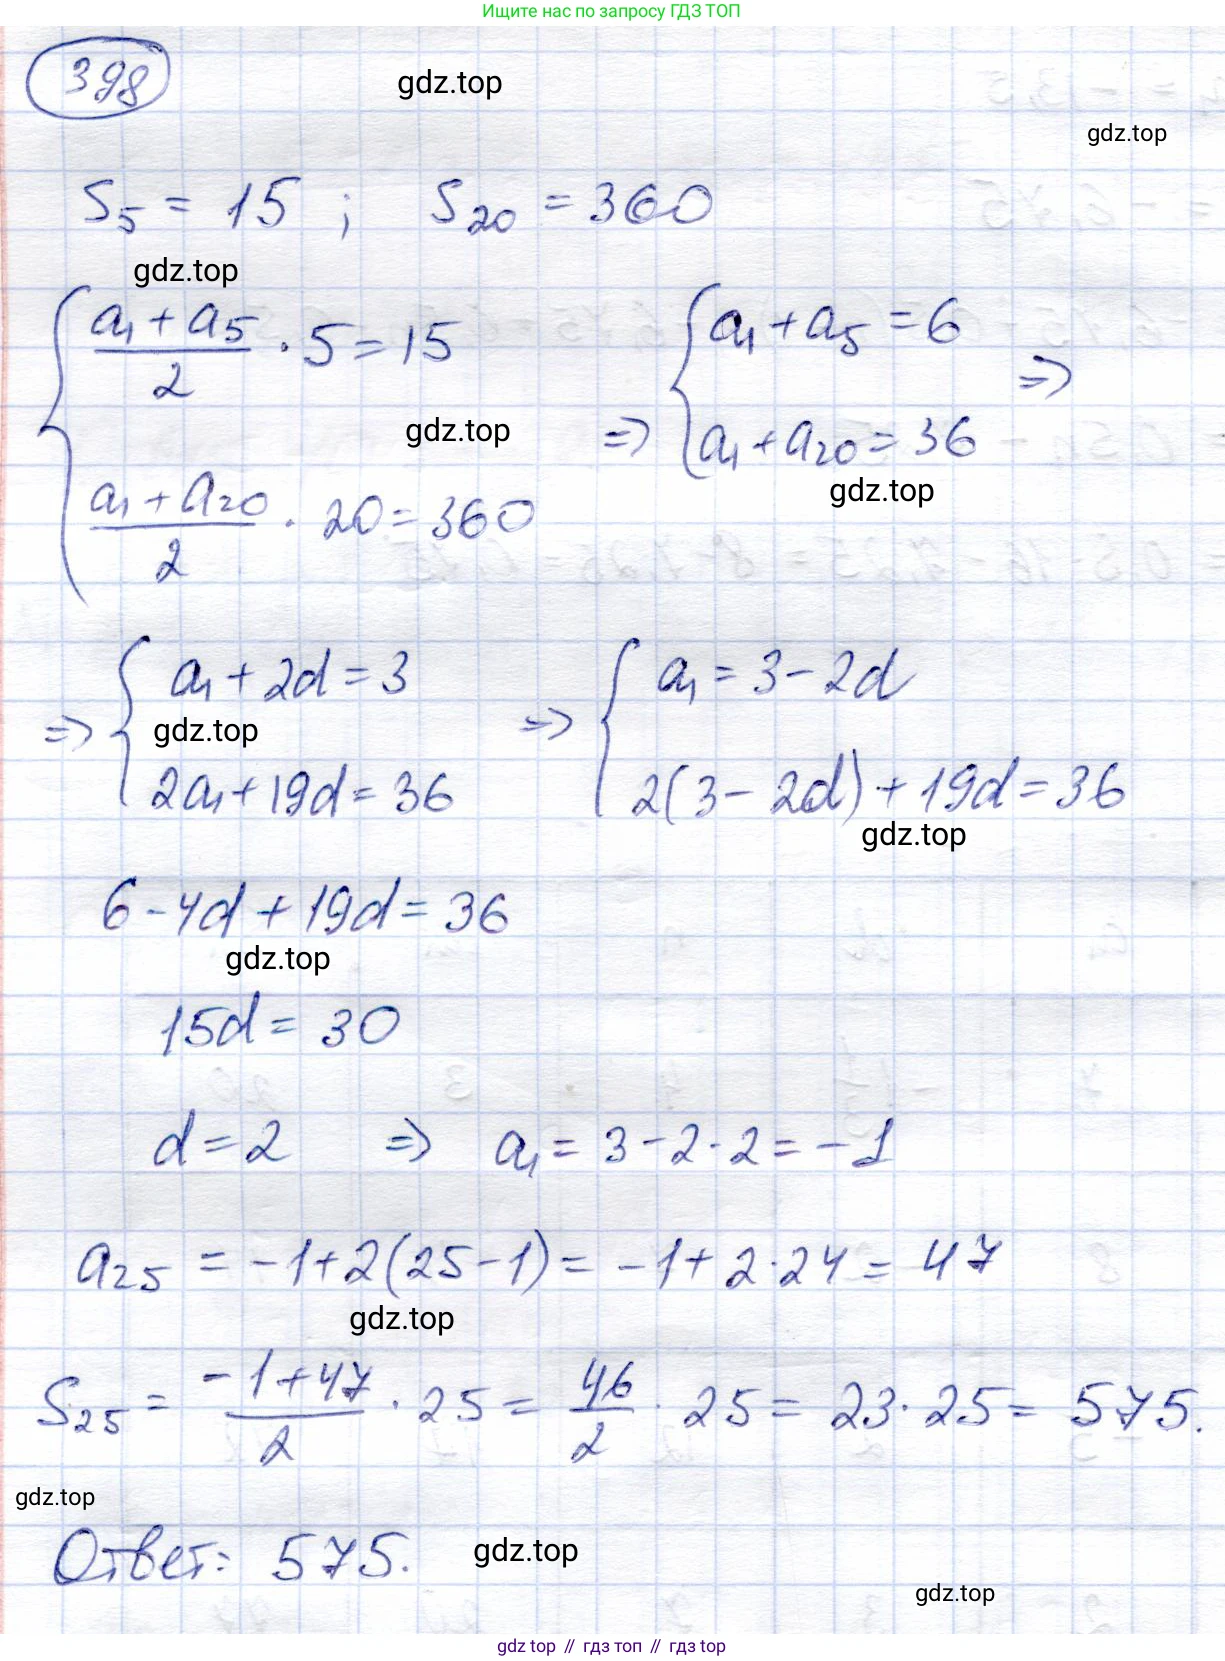 Ищите нас по запросу ГДЗ ТОП
398
gdz.top
gdz.top
S₅ = 15 ; S₂₀ = 360
gdz.top
{ (a₁ + a₅)/2 · 5 = 15
(a₁ + a₂₀)/2 · 20 = 360
gdz.top
⇒ { a₁ + a₅ = 6
a₁ + a₂₀ = 36 ⇒
gdz.top
⇒ { a₁ + 2d = 3
gdz.top
2a₁ + 19d = 36
⇒ { a₁ = 3 - 2d
2(3 - 2d) + 19d = 36
gdz.top
6 - 4d + 19d = 36
gdz.top
15d = 30
d = 2 ⇒ a₁ = 3 - 2 · 2 = -1
a₂₅ = -1 + 2(25 - 1) = -1 + 2 · 24 = 47
gdz.top
S₂₅ = (-1 + 47)/2 · 25 = 46/2 · 25 = 23 · 25 = 575.
gdz.top
Ответ: 575.
gdz.top
gdz.top
gdz top // гдз топ // гдз top